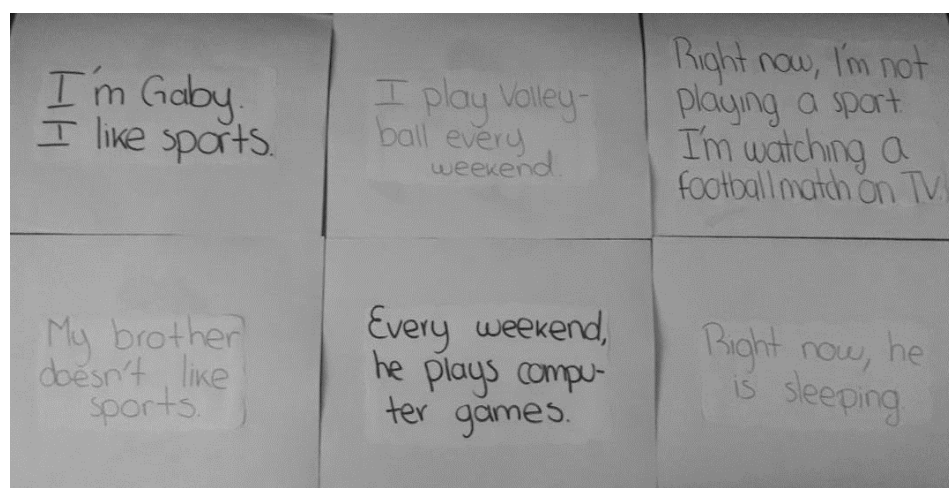 I'm Gaby.
I like sports.
I play Volley-
ball every
weekend.
Right now, I'm not
playing a sport.
I'm watching a
football match on TV.
My brother
doesn't like
sports.
Every weekend,
he plays compu-
ter games.
Right now, he
is sleeping